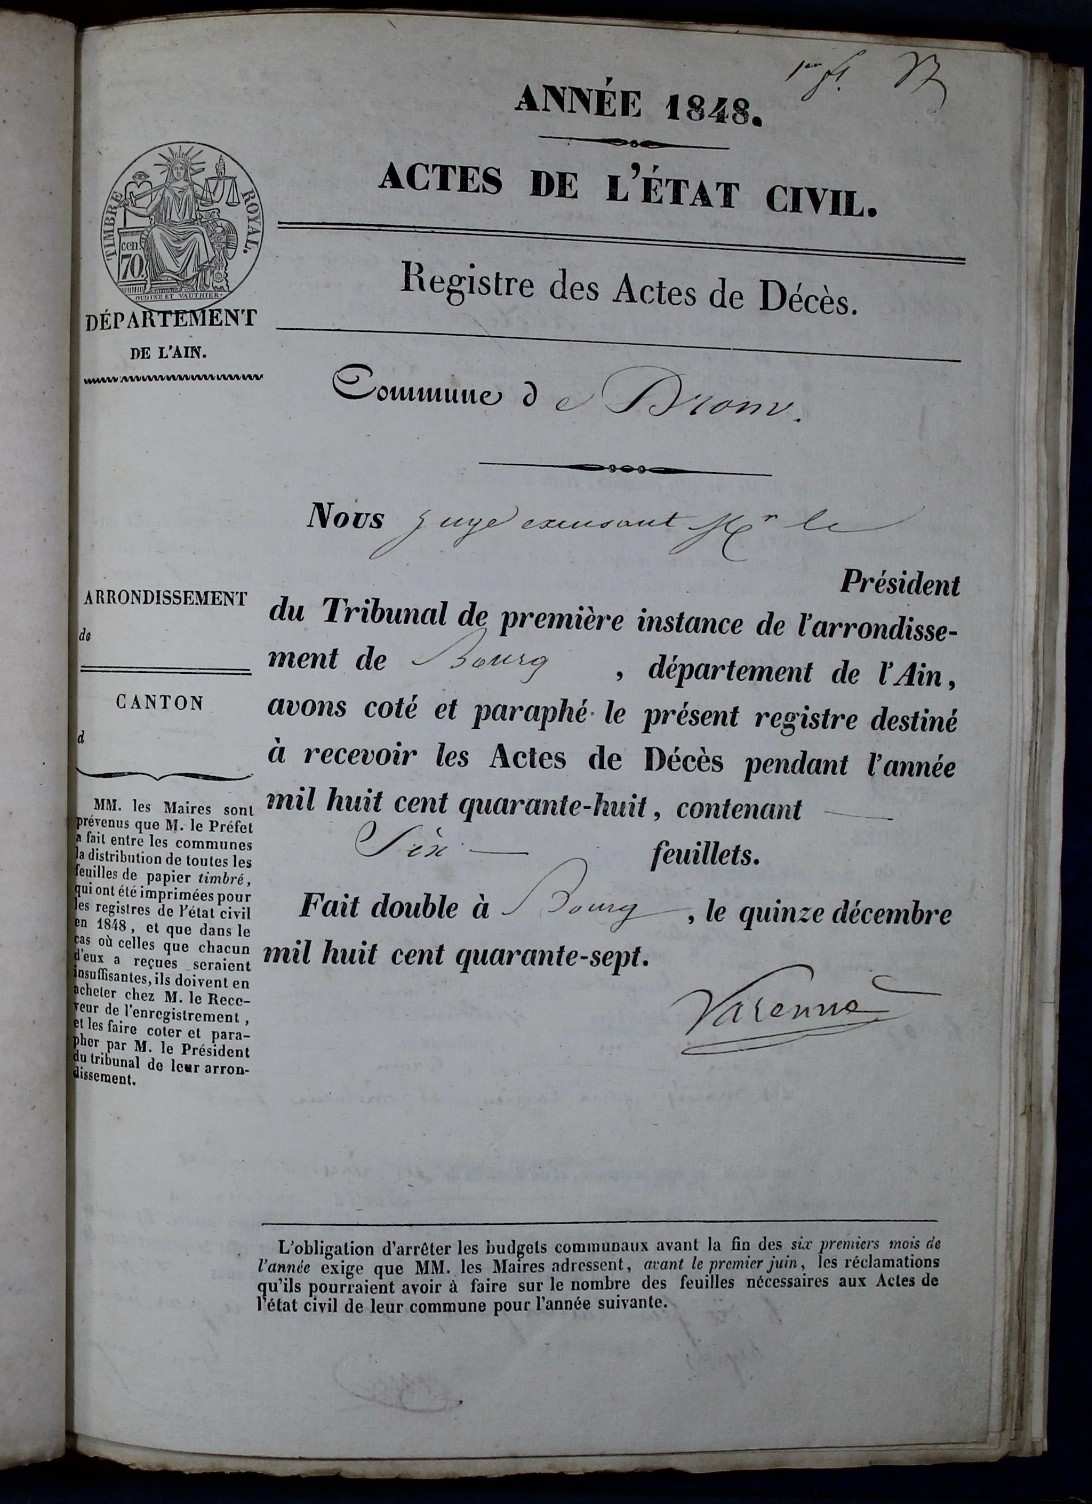 1er ft.
ANNÉE 1848.
ACTES DE L'ÉTAT CIVIL.
TIMBRE ROYAL.
cen
70
OUDINÉ ET VAUTHIER.
DÉPARTEMENT
DE L'AIN.
Registre des Actes de Décès.
Commune de Drom.
Nous Juge excusant Mr le
Président
du Tribunal de première instance de l'arrondisse-
ment de Bourg, département de l'Ain,
avons coté et paraphé le présent registre destiné
à recevoir les Actes de Décès pendant l'année
mil huit cent quarante-huit, contenant
Six feuillets.
Fait double à Bourg, le quinze décembre
mil huit cent quarante-sept.
Varenne
ARRONDISSEMENT
de
CANTON
d
MM. les Maires sont
prévenus que M. le Préfet
a fait entre les communes
la distribution de toutes les
feuilles de papier timbré,
qui ont été imprimées pour
les registres de l'état civil
en 1848, et que dans le
cas où celles que chacun
d'eux a reçues seraient
insuffisantes, ils doivent en
acheter chez M. le Rece-
veur de l'enregistrement,
et les faire coter et para-
pher par M. le Président
du tribunal de leur arron-
dissement.
L'obligation d'arrêter les budgets communaux avant la fin des six premiers mois de
l'année exige que MM. les Maires adressent, avant le premier juin, les réclamations
qu'ils pourraient avoir à faire sur le nombre des feuilles nécessaires aux Actes de
l'état civil de leur commune pour l'année suivante.